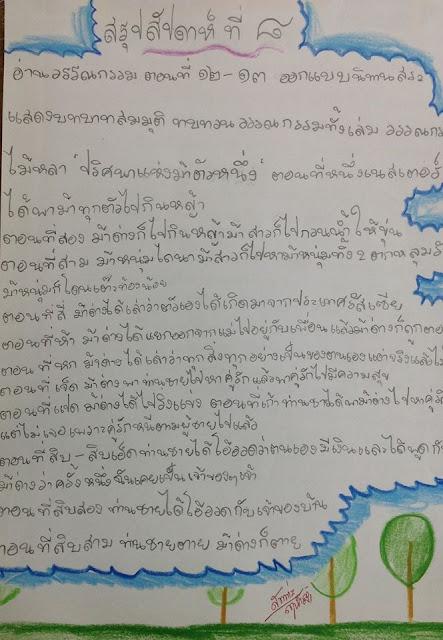 สรุปสัปดาห์ที่ ๘
อ่านวรรณกรรม ตอนที่ ๑๒-๑๓ ออกแบบนิทานสระ
แสดงบทบาทสมมุติ ทบทวนวรรณกรรมทั้งเล่ม วรรณกร
ไม้หลา "ปริศนาแห่งม้าตัวหนึ่ง" ตอนที่หนึ่งเนสเตอร์
ได้พาม้าทุกตัวไปกินหญ้า
ตอนที่สอง ม้าด่างก็ไปกินหญ้าม้าสาวก็ไปกวนน้ำให้ขุ่น
ตอนที่สาม ม้าหนุ่มไถนาม้าสาวก็ไปหาม้าหนุ่มทั้ง ๒ ตกหลุมรั
ม้าหนุ่มก็โดนเตะท้องน้อย
ตอนที่สี่ ม้าด่างได้เล่าว่าตัวเองได้เกิดมาจากประเทศรัสเซีย
ตอนที่ห้า ม้าด่างได้แยกออกจากแม่ไปอยู่กับเพื่อนแล้วม้าด่างก็ถูกตอ
ตอนที่หก ม้าด่างได้เล่าว่าทุกสิ่งทุกอย่างเป็นของตนเองแต่จริงแล้วไม่
ตอนที่เจ็ด ม้าด่างพาท่านชายไปหาคู่รักแล้วพาคู่รักไปมีความสุข
ตอนที่แปด ม้าด่างได้ไปวิ่งแข่ง ตอนที่เก้า ท่านชายได้พาม้าด่างไปหาคู่รั
แต่ไม่เจอเพราะคู่รักหนีตามผู้ชายไปแล้ว
ตอนที่สิบ-สิบเอ็ดท่านชายได้โอ้อวดว่าตนเองมีเงินและได้พูดกั
ม้าด่างว่าครั้งหนึ่งฉันเคยเป็นเจ้าของเจ้า
ตอนที่สิบสอง ท่านชายได้โอ้อวดกับเจ้าของบ้าน
ตอนที่สิบสาม ท่านชายตาย ม้าด่างก็ตาย